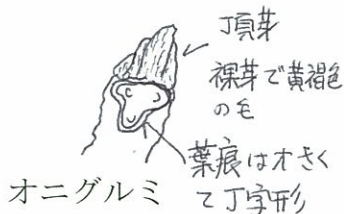 頂芽
裸芽で黄褐色
の毛
葉痕は大きく
て丁字形
オニグルミ